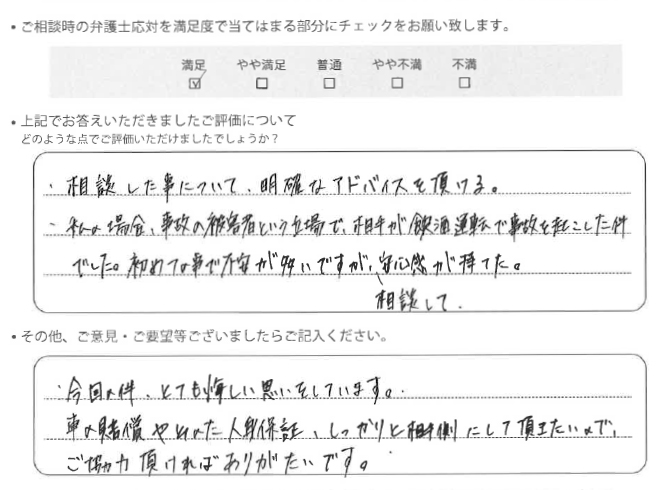 ・ご相談時の弁護士応対を満足度で当てはまる部分にチェックをお願い致します。
満足 やや満足 普通 やや不満 不満
☑ ☐ ☐ ☐ ☐
・上記でお答えいただきましたご評価について
どのような点でご評価いただけましたでしょうか?
・相談した事について、明確なアドバイスを頂ける。
・私の場合、事故の被害者という立場で、相手が飲酒運転で事故を起こした件
でした。初めての事で不安が多いですが、安心感が持てた。
相談して、
・その他、ご意見・ご要望等ございましたらご記入ください。
・今回の件、とても悔しい思いをしています。
車の賠償や 人身保証、しっかりと相手側にして頂きたいので、
ご協力頂ければありがたいです。